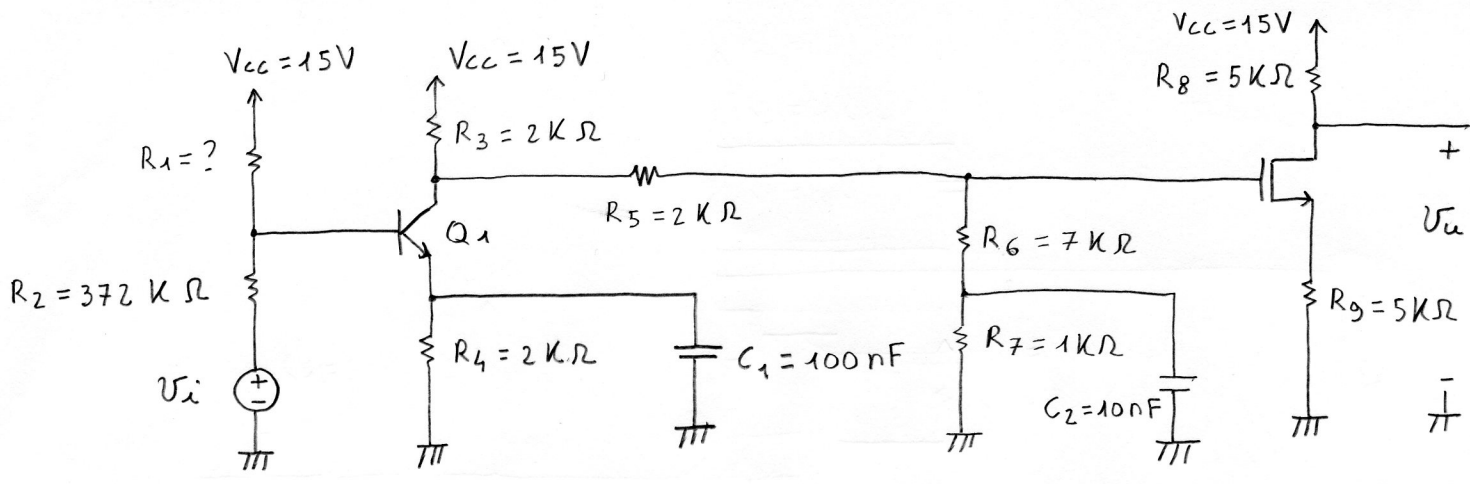 Vcc = 15V
Vcc = 15V
Vcc = 15V
R8 = 5KΩ
R1 = ?
R3 = 2KΩ
+
R5 = 2KΩ
Q1
R6 = 7KΩ
Vu
R2 = 372 KΩ
R9 = 5KΩ
R4 = 2KΩ
C1 = 100nF
R7 = 1KΩ
Vi
+
-
C2 = 10nF
-